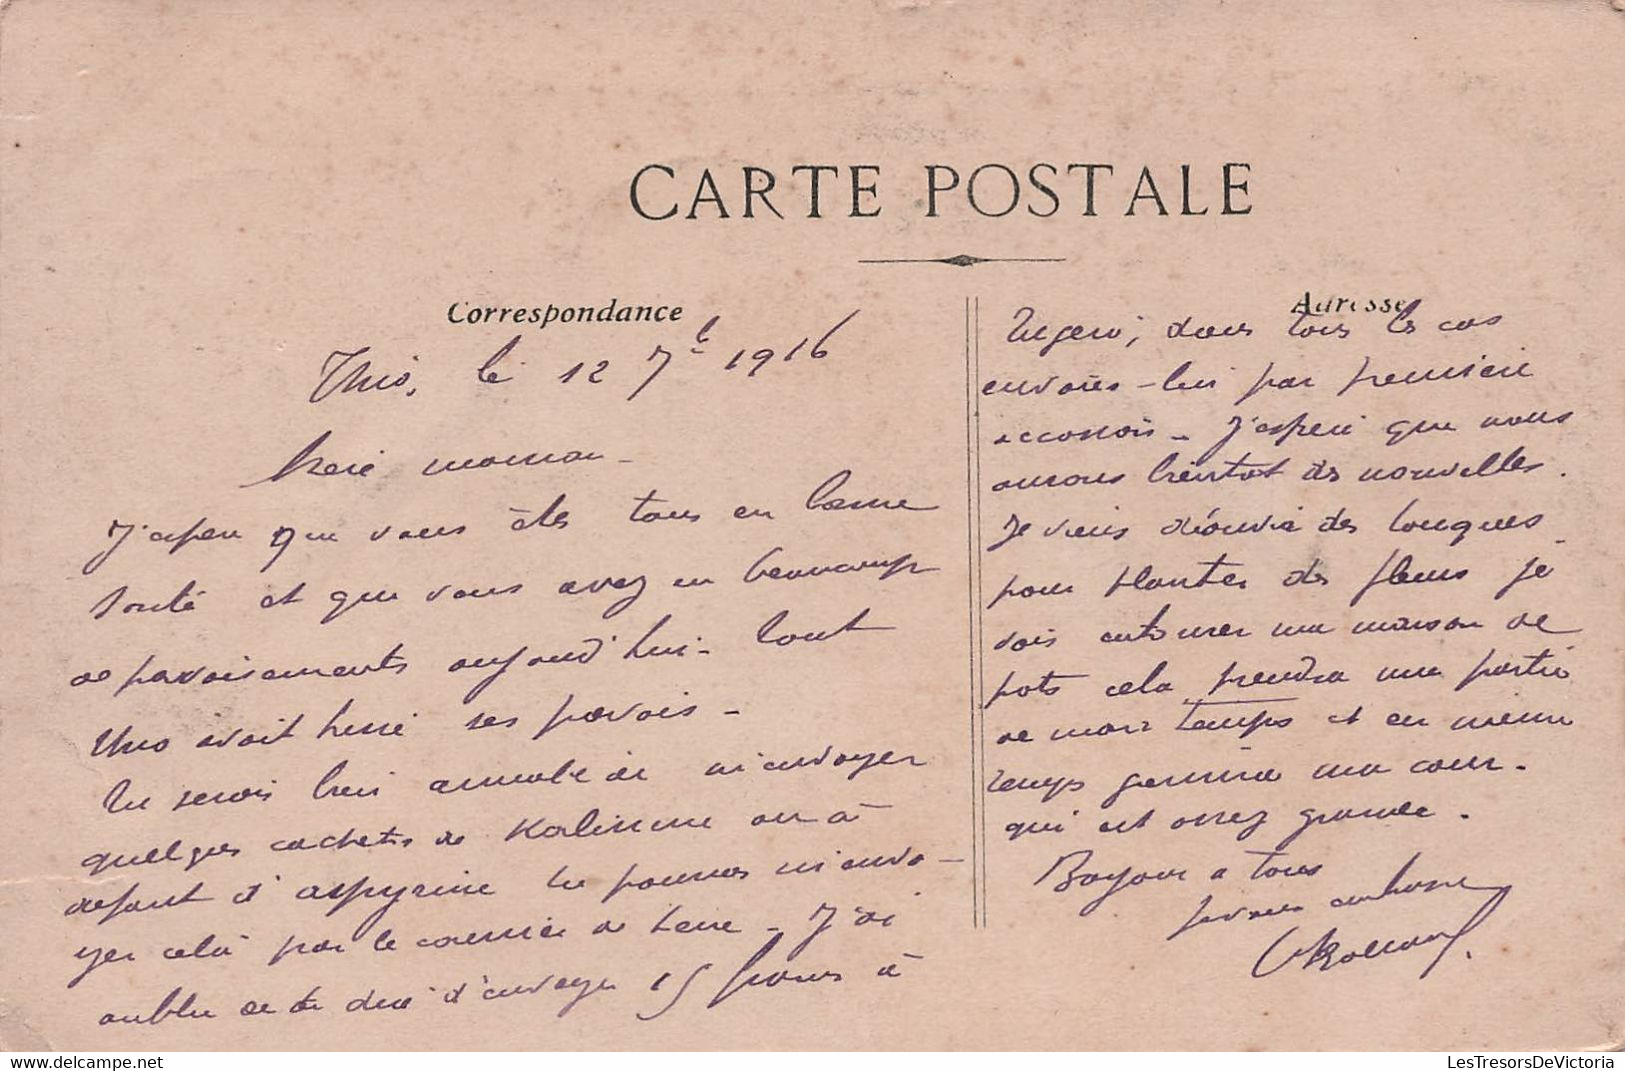 CARTE POSTALE
Correspondance
Thio, le 12 7bre 1916
chère maman
J'espère que vous êtes tous en bonne
santé et que vous avez eu beaucoup
de pavoisements aujourd'hui - tout
Thio avait hissé ses pavois -
Tu serais bien aimable de m'envoyer
quelques cachets de Kalmine ou à
defaut d'aspyrine tu pourras m'envo-
yer cela par le courrier de terre - J'ai
oublié de te dire d'envoyer 15 francs à
Adresse
dans tous les cas
envoies-lui par première
occasion - J'espère que nous
aurons bientot des nouvelles.
Je viens d'ouvrir des touques
pour planter des fleurs je
vais entourer ma maison de
pots cela prendra une partie
de mon temps et en même
temps garnira ma cour.
qui est assez grande.
Bonjour a tous
Je vous embrasse
LesTresorsDeVictoria.com